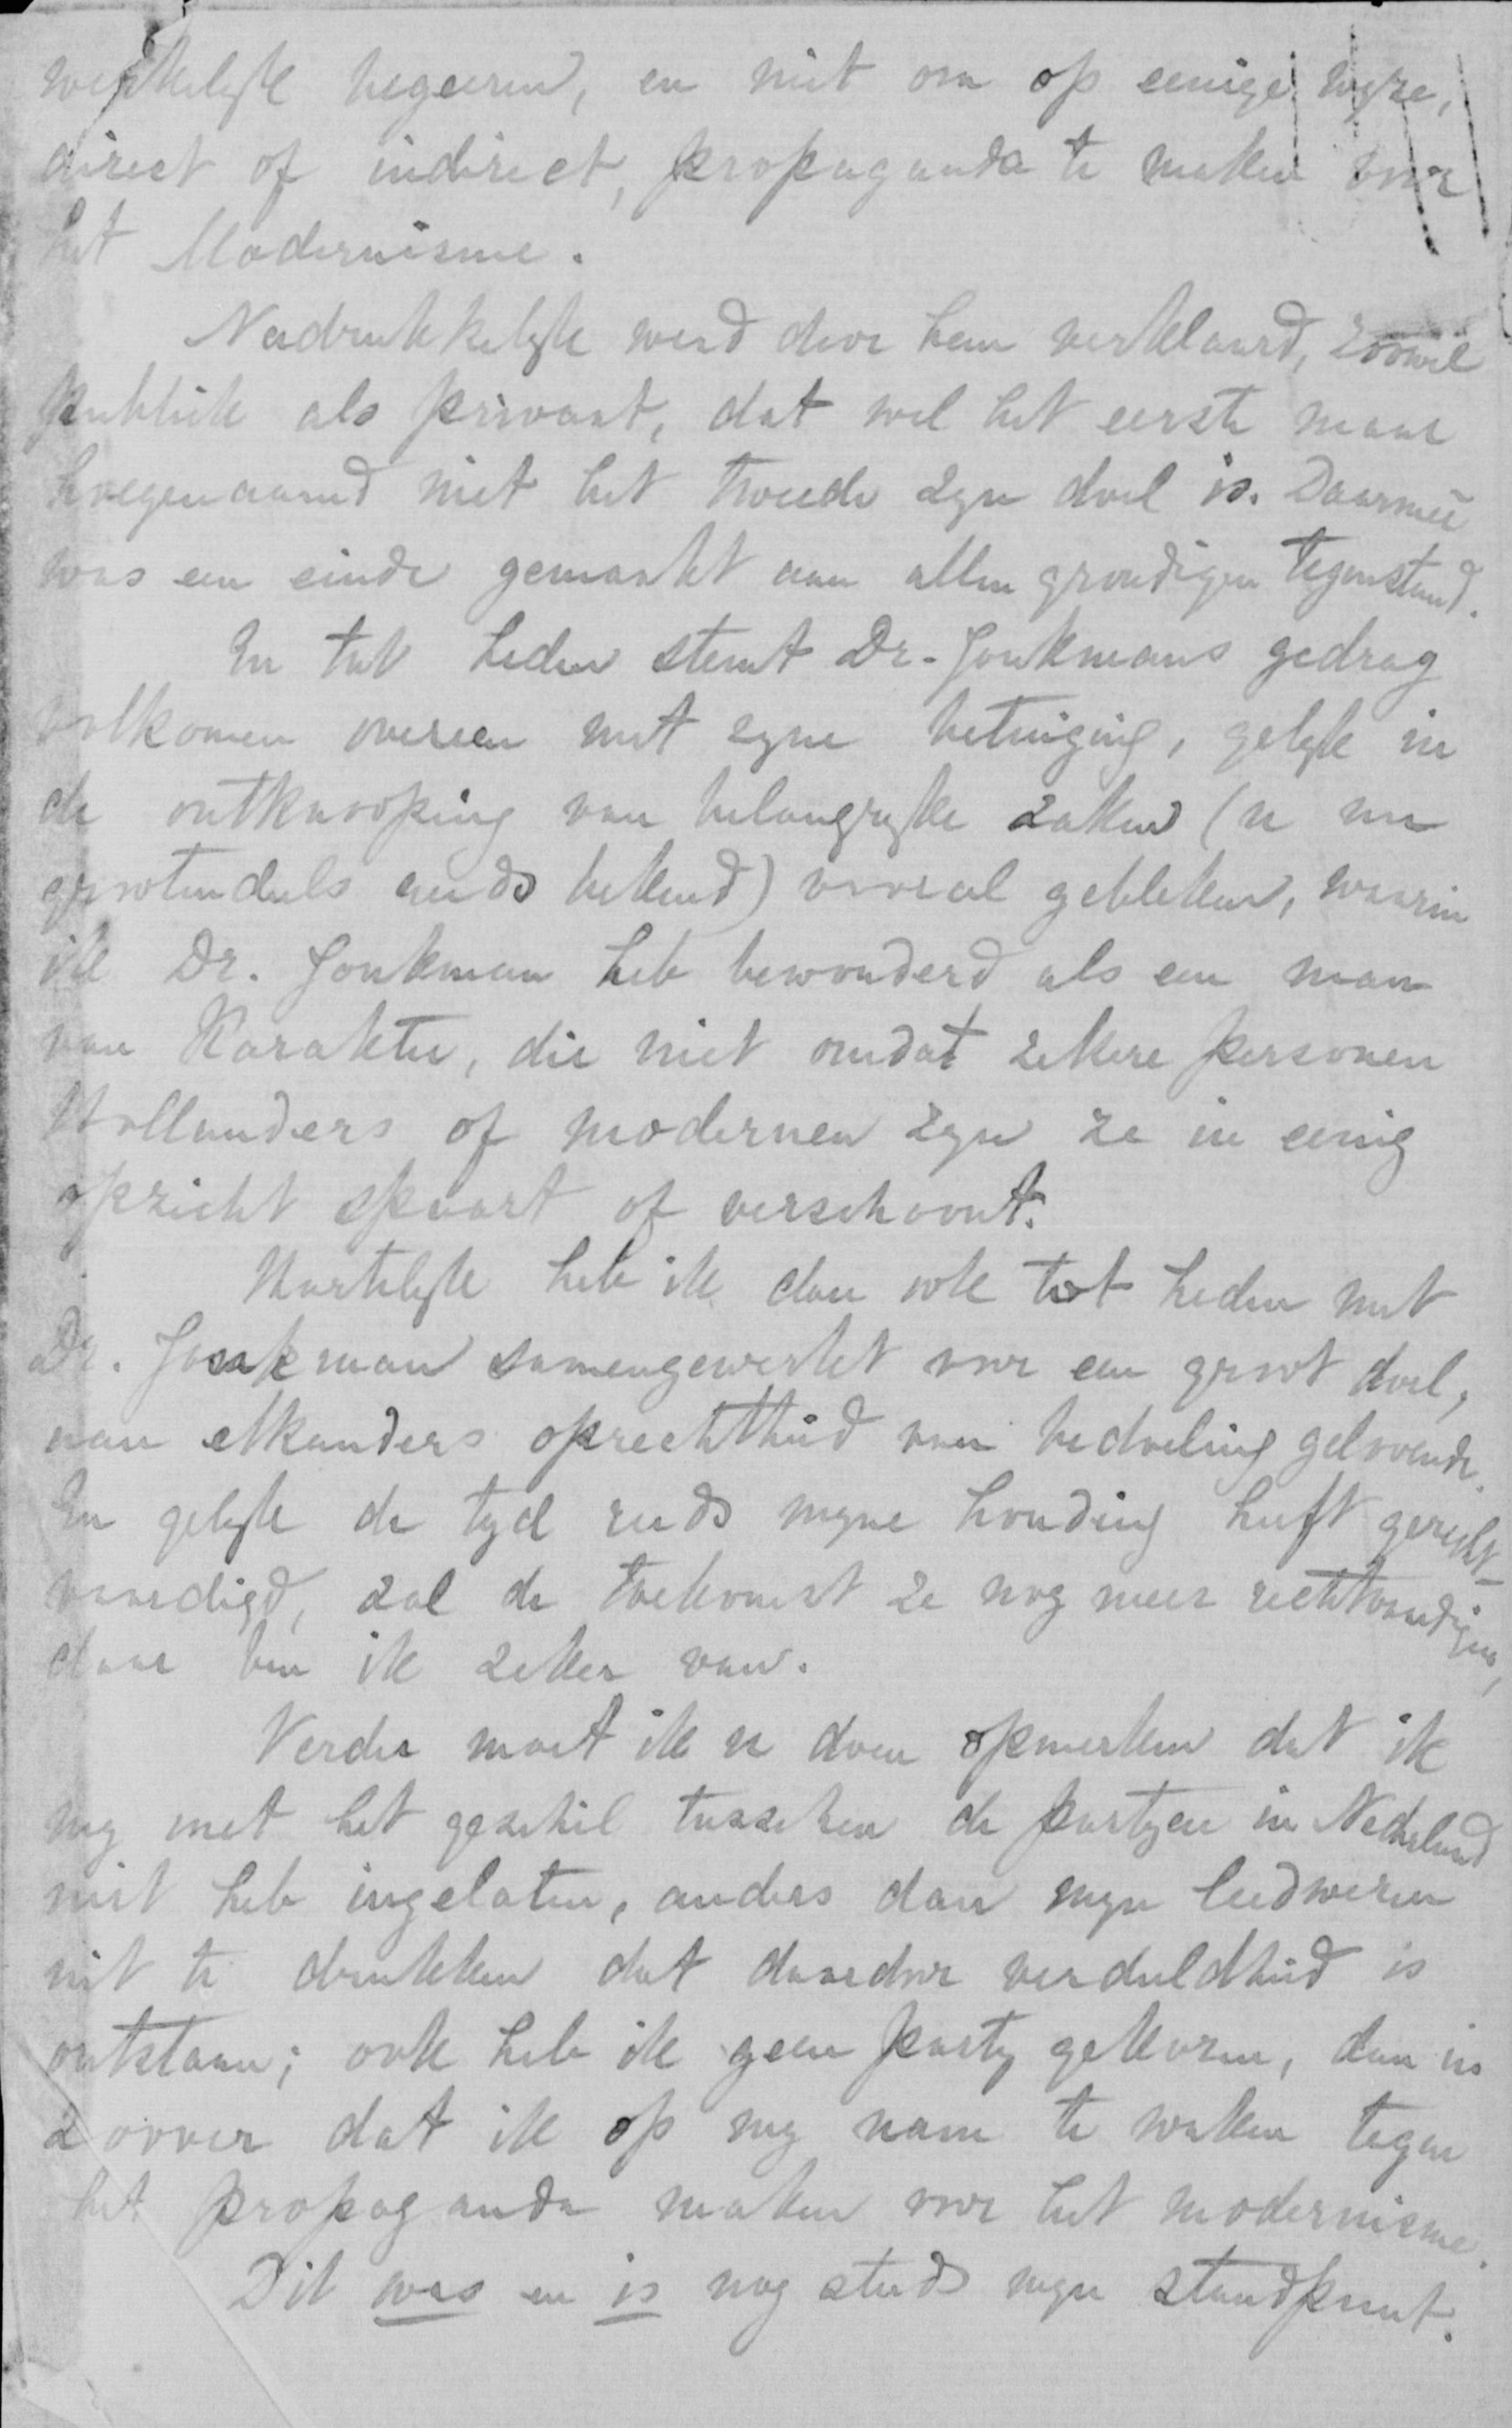 werkelyk begeeren, en niet om op eenige wyze,
direct of indirect, propaganda te maken voor
het Modernisme.
Nadrukkelyk werd door hem verklaard, zoowel
publiek als privaat, dat wel het eerste maar
hoegenaamd niet het tweede zyn doel is. Daarmeê
was een einde gemaakt aan allen grondigen tegenstand.
En tot heden stemt Dr. Jonkmans gedrag
volkomen overeen met zyne betuiging, gelyk in
de ontknooping van belangryke zaken (u nu
grootendeels reeds bekend) vooral gebleken, waarin
ik Dr. Jonkman heb bewonderd als een man
van Karakter, die niet omdat zekere personen
Hollanders of modernen zyn ze in eenig
opzicht spaart of verschoont.
Hartelyk heb ik dan ook tot heden met
Dr. Jonkman samengewerkt voor een groot doel,
aan elkanders oprechtheid van bedoeling geloovende.
En gelyk de tyd reeds myne houding heeft gerecht-
vaardigd, zal de toekomst ze nog meer rechtvaardigen,
daar ben ik zeker van.
Verder moet ik u doen opmerken dat ik
my met het geschil tusschen de partyen in Nederland
niet heb ingelaten, anders dan myn leedwezen
uit te drukken dat daardoor verdeeldheid is
ontstaan; ook heb ik geen party gekozen, dan in
zoover dat ik op my nam te waken tegen
het propaganda maken voor het modernisme.
Dit was en is nog steeds myn standpunt.